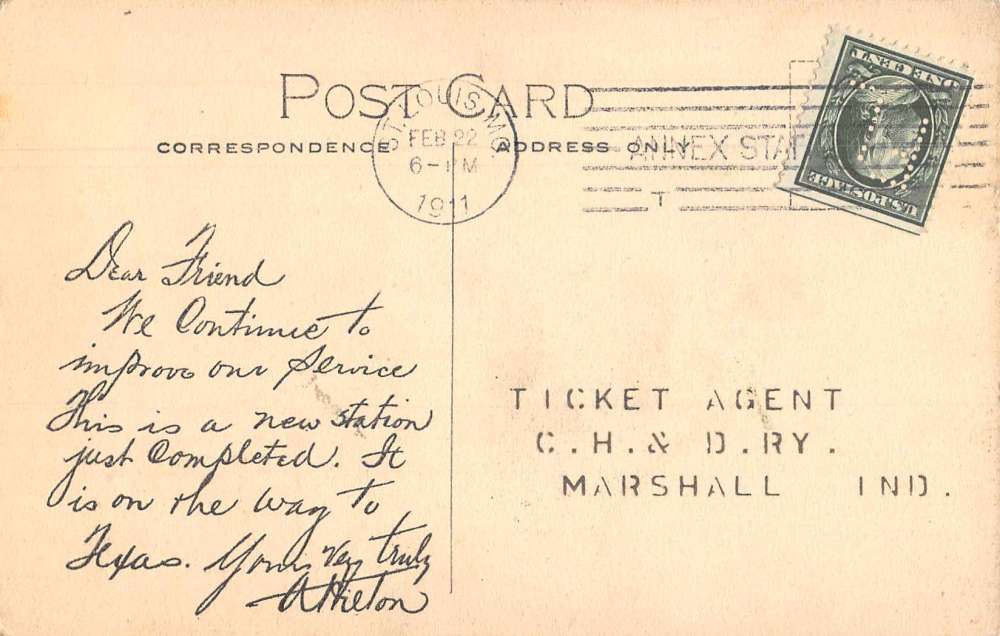 POST CARD
CORRESPONDENCE
ADDRESS ONLY
ST. LOUIS, MO.
FEB 22
6- PM
1911
ANNEX STA
T
ONE CENT
U.S. POSTAGE
Dear Friend
We Continue to
improve our service
This is a new station
just Completed. It
is on the way to
Texas. Yours very truly
A Hilton
TICKET AGENT
C.H.& D.RY.
MARSHALL IND.